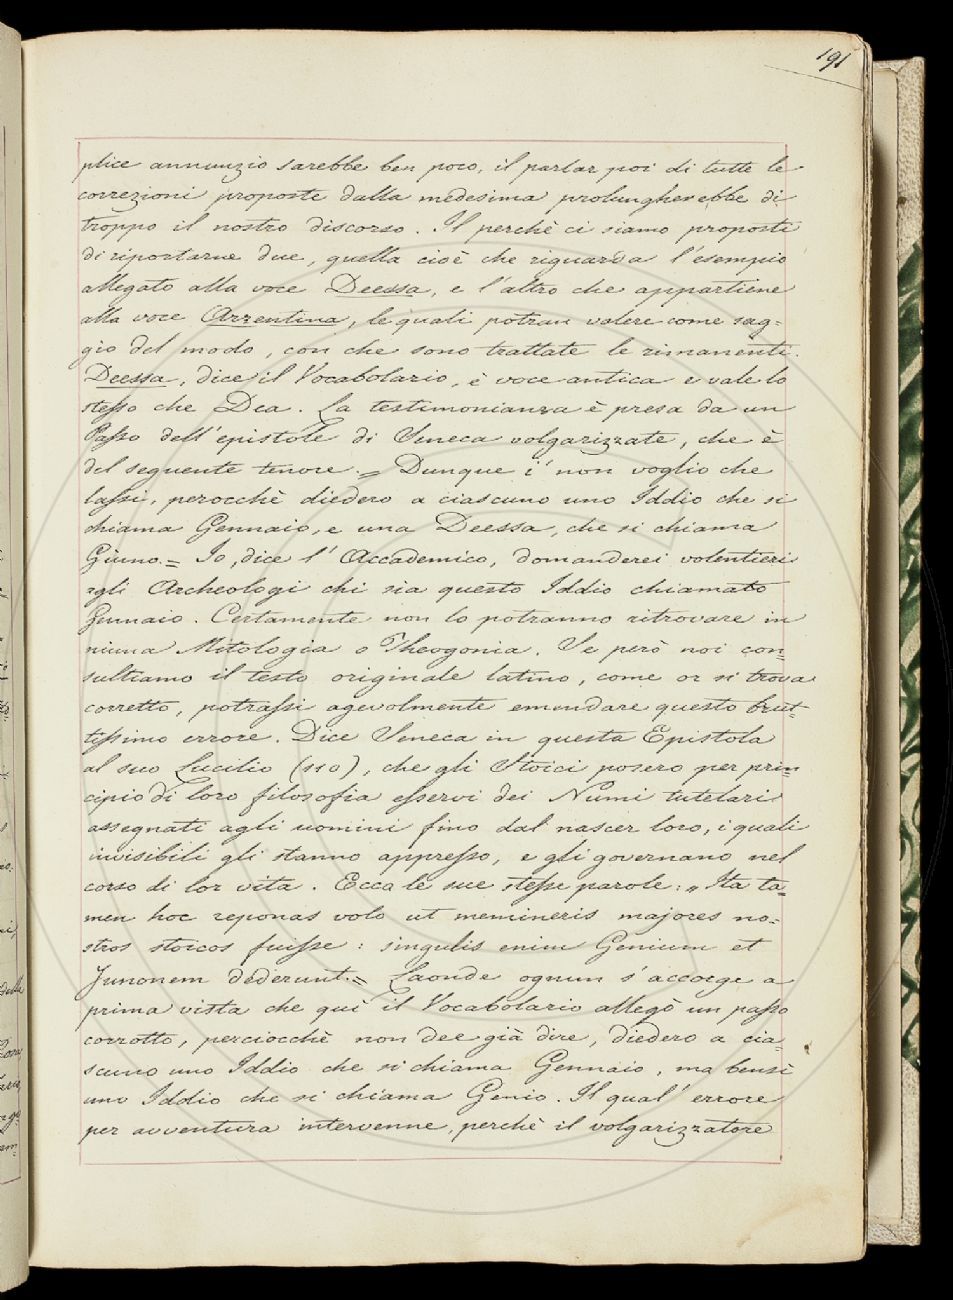 191
plice annunzio sarebbe ben poco, il parlar poi di tutte le
correzioni proposte dalla medesima prolungherebbe di
troppo il nostro discorso. Il perchè ci siamo proposti
di riportarne due, quella cioè che riguarda l'esempio
allegato alla voce Deessa, e l'altro che appartiene
alla voce Arzentina, le quali potran valere come sag=
gio del modo, con che sono trattate le rimanenti.
Deessa, dice il Vocabolario, è voce antica e vale lo
stesso che Dea. La testimonianza è presa da un
Passo dell'epistole di Seneca volgarizzate, che è
del seguente tenore. = Dunque i' non voglio che
lassi, perocchè diedero a ciascuno uno Iddio che si
chiama Gennaio, e una Deessa, che si chiama
Giuno. = Io, dice l'Accademico, domanderei volentieri
agli Archeologi chi sia questo Iddio chiamato
Gennaio. Certamente non lo potranno ritrovare in
niuna Mitologia o Theogonia. Se però noi con=
sultiamo il testo originale latino, come or si trova
corretto, potrassi agevolmente emendare questo brut=
tissimo errore. Dice Seneca in questa Epistola
al suo Lucilio (110), che gli Stoici posero per prin=
cipio di loro filosofia esservi dei Numi tutelari
assegnati agli uomini fino dal nascer loro, i quali
invisibili gli stanno appresso, e gli governano nel
corso di lor vita. Ecco le sue stesse parole: „ Ita ta=
men hoc reponas volo ut memineris majores no=
stros stoicos fuisse: singulis enim Genium et
Junonem dederunt. = Laonde ognun s'accorge a
prima vista che qui il Vocabolario allegò un passo
corrotto, perciocchè non dee già dire, diedero a cia=
scuno uno Iddio che si chiama Gennaio, ma bensì
uno Iddio che si chiama Genio. Il qual'errore
per avventura intervenne, perchè il volgarizzatore